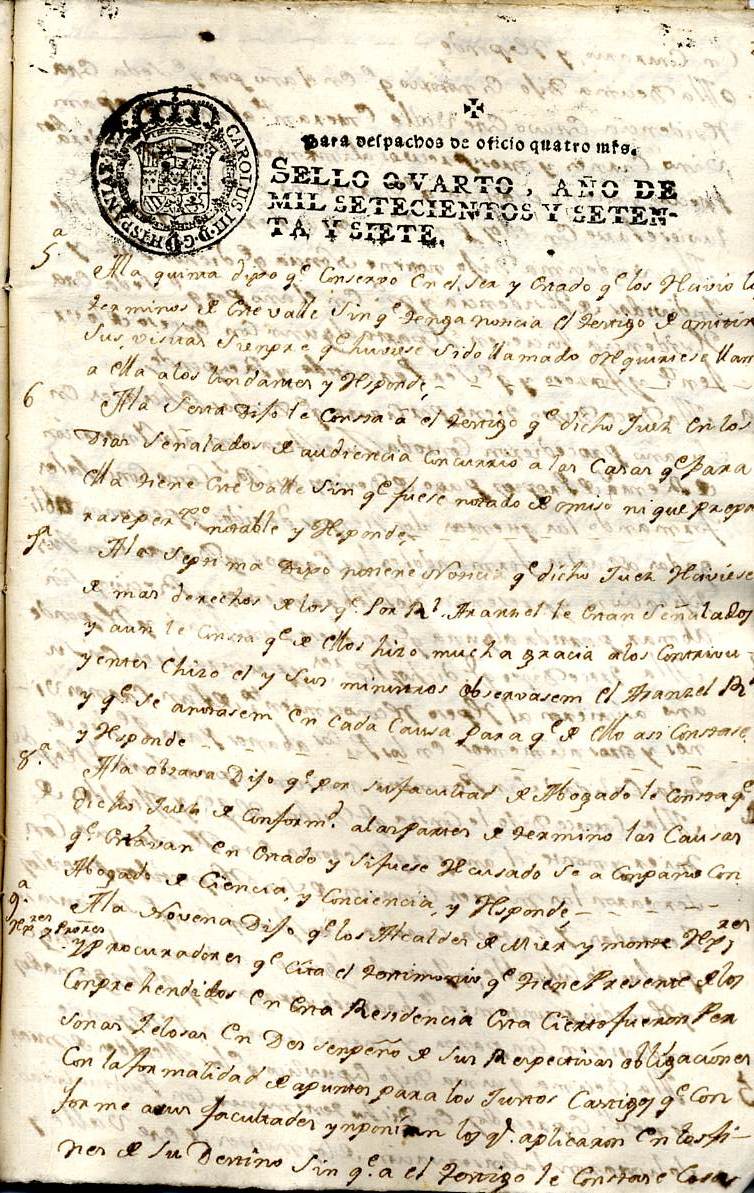 CAROLUS III D G HISPANIAR REX
Para despachos de oficio quatro mrs.
SELLO QVARTO, AÑO DE
MIL SETECIENTOS Y SETEN-
TA Y SIETE.
5.ª
A la quinta dixo q.e Conservo En el Ser y Estado q.e los
terminos de Este valle Sin q.e tenga noticia el testigo de omitir
Sus visitas Sienpre q.e huviese sido llamado
a ella a los lindantes y Responde
6
A la Sesta Dijo le Consta a el testigo q.e dicho Juez En los
Dias Señalados de audiencia Concurrio a las Casas q.e para
Ella tiene Este Valle Sin q.e fuese notado de omiso ni que
notable y Responde
7ª
A la Septima Dixo no tiene Noticia q.e dicho Juez
de mas derechos de los q.e por R.l Aranzel le Estan Señalados
y aun le Consta q.e de Ellos hizo mucha gracia a los Contrivu-
yentes Ehizo el y Sus ministros observasem el Aranzel R.l
y q.e Se anotasem En Cada Causa para q.e de Ello asi Constase
y Responde
8.ª
A la octava Dijo q.e por su facultad de Abogado le Consta q.e
dicho Juez de Conform.d a las partes de termino las Causas
q.e Estavan En Estado y si fuese Recusado Se a Conpaño Con
Abogado de Ciencia, y Conciencia, y Responde
9.ª
A la Novena Dijo q.e los Alcaldes de Mier y monte
y Procuradores q.e Cita el testimonio q.e tiene Presente de los
Conprehendidos En Esta Residencia Esta Cierto fueron Per
sonas Zelosas En Des senpeño de Sus Respectivas obligaciones
Con la formalidad de apuntes para los Justos Castigos q.e Con
forme a sus facultades ynponian los q.e aplicaron En los fi-
nes de Su Destino Sin q.e a el testigo le Constase Cosas